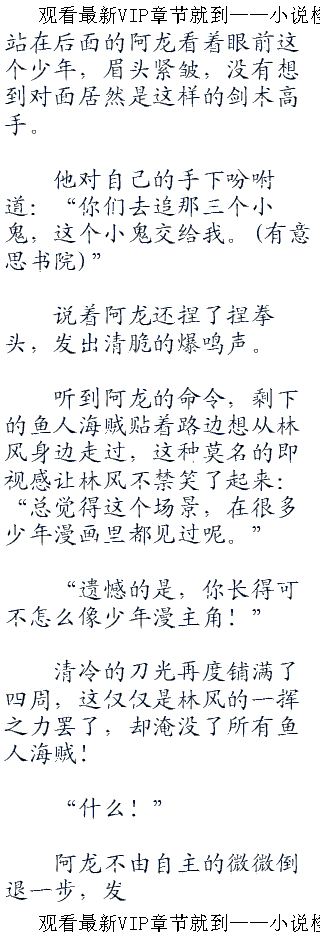 观看最新VIP章节就到——小说楼
站在后面的阿龙看着眼前这
个少年，眉头紧皱，没有想
到对面居然是这样的剑术高
手。
他对自己的手下吩咐
道：“你们去追那三个小
鬼，这个小鬼交给我。(有意
思书院)”
说着阿龙还捏了捏拳
头，发出清脆的爆鸣声。
听到阿龙的命令，剩下
的鱼人海贼贴着路边想从林
风身边走过，这种莫名的即
视感让林风不禁笑了起来：
“总觉得这个场景，在很多
少年漫画里都见过呢。”
“遗憾的是，你长得可
不怎么像少年漫主角！”
清冷的刀光再度铺满了
四周，这仅仅是林风的一挥
之力罢了，却淹没了所有鱼
人海贼！
“什么！”
阿龙不由自主的微微倒
退一步，发
观看最新VIP章节就到——小说